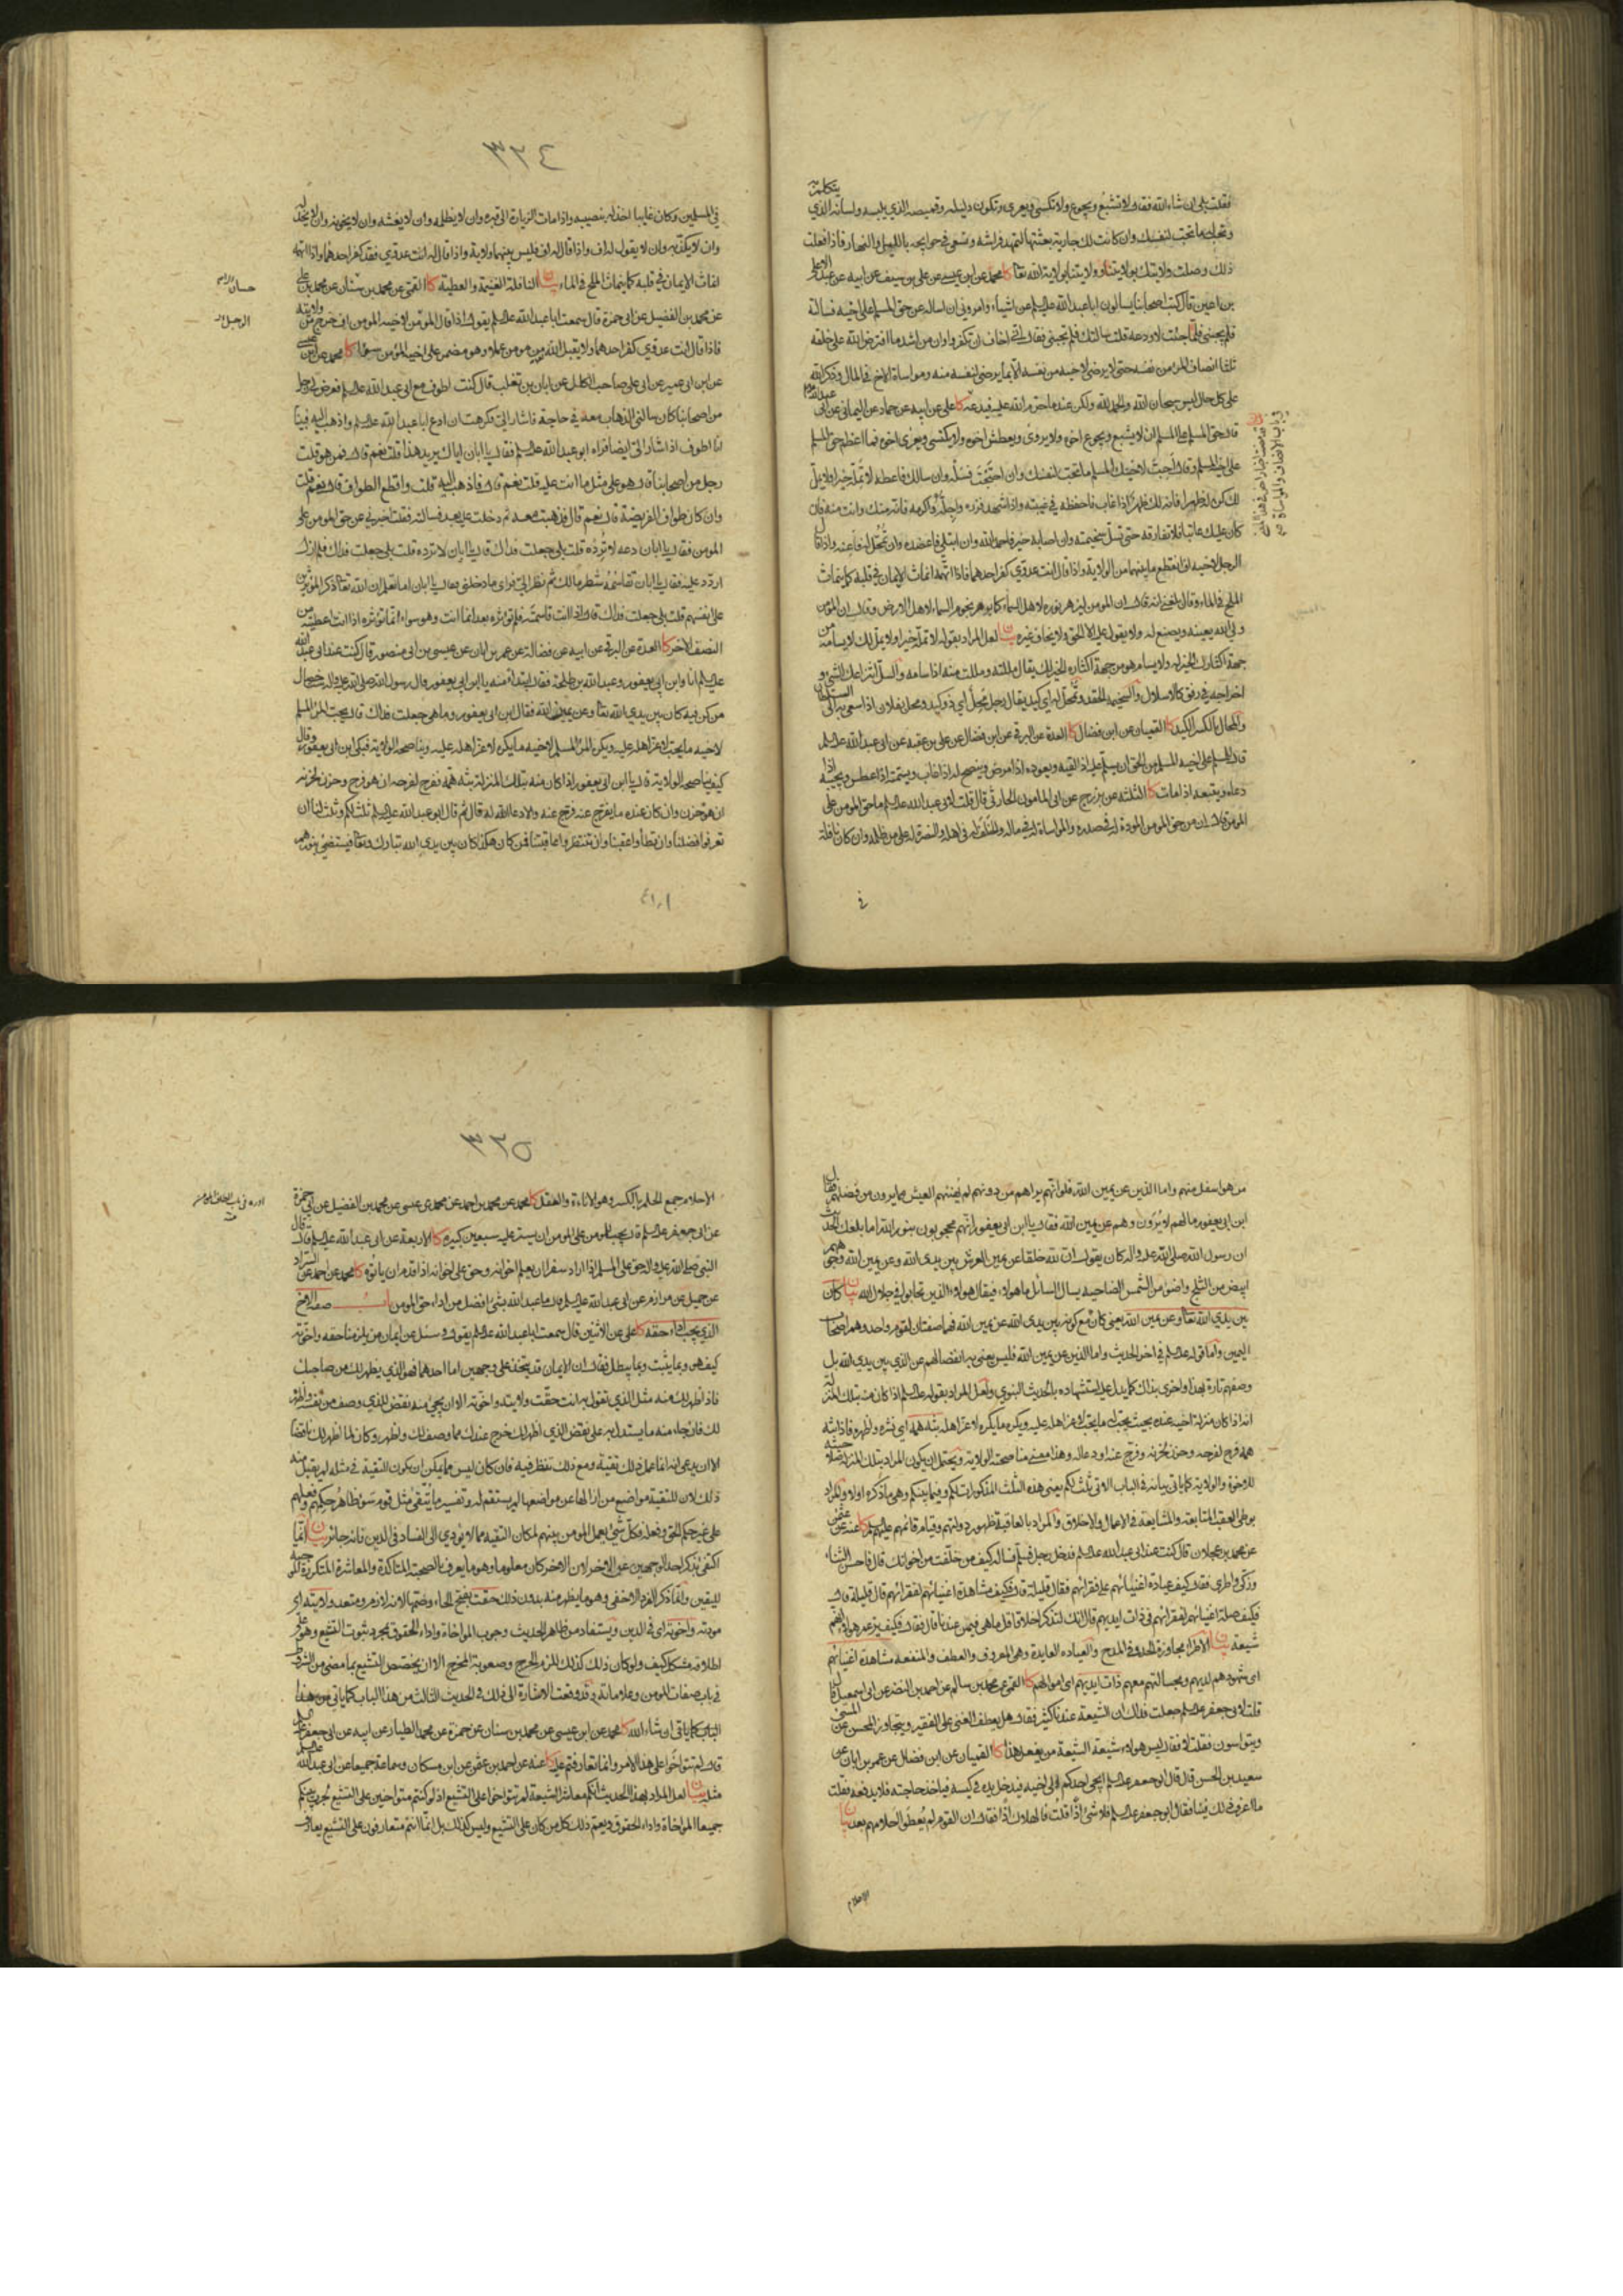 فقلت بلى ان شاء الله فقال لا تشبع ويجوع ولا تكتسي ويعرى وتكون دليله وقميصه الذي يلبسه ولسانه الذي
يتكلم به
وتحب له ما تحب لنفسك وان كانت لك جارية بعثتها لتمهد فراشه وتسعى في حوايجه بالليل والنهار فاذا فعلت
ذلك وصلت ولايتك بولايتنا وولايتنا بولاية الله تعا كا محمد عن ابن عيسى عن علي بن سيف عن ابيه عن عبد الاعلى
بن اعين قال كتب اصحابنا يسألون ابا عبد الله علیه السلم عن اشياء وامروني ان اساله عن حق المسلم على اخيه فسالته
فلم يجبني فلما جئت لاودعه قلت سالتك فلم تجبني فقال اني اخاف ان تكفروا وان من اشد ما افترض الله على خلقه
ثلثا انصاف المؤمن من نفسه حتى لا يرضى لاخيه من نفسه الا بما يرضى لنفسه منه ومواساة الاخ في المال وذكر الله
على كل حال ليس سبحان الله والحمد لله ولكن عند ما حرم الله عليه فيدعه كا علي عن ابيه عن حماد عن اليماني عن ابي
عبد الله
قال حق المسلم على المسلم ان لا يشبع ويجوع اخوه ولا يروى ويعطش اخوه ولا يكتسي ويعرى اخوه فما اعظم حق المسلم
على اخيه المسلم وقال احب لاخيك المسلم ما تحب لنفسك وان احتجت فسله وان سالك فاعطه لا تمله خيرا ولا يمله
لك كن له ظهرا فانه لك ظهر اذا غاب فاحفظه في غيبته واذا شهد فزره واجله واكرمه فانه منك وانت منه فان
كان عليك عاتبا فلا تفارقه حتى تسل سخيمته وان اصابه خير فاحمد الله وان ابتلي فاعضده وان تمحل له فاعنه واذا قال
الرجل لاخيه اف انقطع ما بينهما من الولاية واذا قال انت عدوي كفر احدهما فاذا اتهمه انماث الايمان في قلبه كما ينماث
الملح في الماء وقال بلغني انه قال ان المؤمن ليزهر نوره لاهل السماء كما يزهر نجوم السماء لاهل الارض وقال ان المؤمن
ولي الله يعينه ويصنع له ولا يقول عليه الا الحق ولا يخاف غيره بيان لعل المراد بقوله لا تمله خيرا ولا يمله لك لا يسامه من
جهة اكثارك الخير له ولا يسام هو من جهة اكثاره الخير لك يقال مللته ومللت منه اذا سامه والسل انتزاعك الشيء و
اخراجه في رفق كالاسلال والسخيمة الحقد وتمحل له اي كيد يقال رجل محل اي ذو كيد ومحل بفلان اذا سعى به الى السلطان
والمحال بالكسر الكيد كا القميان عن ابن فضال كا العدة عن البرقي عن ابن فضال عن علي بن عقبة عن ابي عبد الله علیه السلم
قال للمسلم على اخيه المسلم من الحق ان يسلم عليه اذا لقيه ويعوده اذا مرض وينصح له اذا غاب ويسمته اذا عطس ويجيبه اذا
دعاه ويتبعه اذا مات كا الثلثة عن بزرج عن ابي المامون الحارثي قال قلت لابي عبد الله علیه السلم ما حق المومن على
المومن قال ان من حق المومن على المومن المودة له في صدره والمواساة له في ماله والخلف له في اهله والنصرة له على من ظلمه وان كان نافلة
في
٣٢٤
في المسلمين وكان غايبا اخذ له بنصيبه واذا مات الزيارة الى قبره وان لا يظلمه وان لا يغشه وان لا يخونه وان لا يخذله
وان لا يكذبه وان لا يقول له اف واذا قال له اف فليس بينهما ولاية واذا قال له انت عدوي فقد كفر احدهما واذا اتهمه
انماث الايمان في قلبه كما ينماث الملح في الماء بيان النافلة الغنيمة والعطية كا القمي عن محمد بن حسان عن محمد بن علي
عن محمد بن الفضيل عن ابي حمزة قال سمعت ابا عبد الله علیه السلم يقول اذا قال المؤمن لاخيه المومن اف خرج من ولايته
فاذا قال انت عدوي كفر احدهما ولا يقبل الله من مومن عملا وهو مضمر على اخيه المؤمن سوءا كا محمد عن ابن عيسى
عن ابن ابي عمير عن ابي علي صاحب الكلل عن ابان بن تغلب قال كنت اطوف مع ابي عبد الله علیه السلم فعرض لي رجل
من اصحابنا كان سالني الذهاب معه في حاجة فاشار الي فكرهت ان ادع ابا عبد الله علیه السلم واذهب اليه فبينا
انا اطوف اذ اشار الي ايضا فراه ابو عبد الله علیه السلم فقال يا ابان اياك يريد هذا قلت نعم قال فمن هو قلت
رجل من اصحابنا قال هو على مثل ما انت عليه قلت نعم قال فاذهب اليه قلت واقطع الطواف قال نعم قلت
وان كان طواف الفريضة قال نعم قال فذهبت معه ثم دخلت عليه بعد فسالته فقلت اخبرني عن حق المومن على
المومن فقال يا ابان دعه لا ترده قلت بلى جعلت فداك قال يا ابان لا ترده قلت بلى جعلت فداك فلم ازل
اردد عليه فقال يا ابان تقاسمه شطر مالك ثم نظر الي فراى ما دخلني فقال يا ابان اما تعلم ان الله تعا قد ذكر المؤثرين
على انفسهم قلت بلى جعلت فداك قال اذا انت قاسمته فلم تؤثره بعد انما انت وهو سواء انما تؤثره اذا انت اعطيته من
النصف الاخر كا العدة عن البرقي عن ابيه عن فضالة عن عمر بن ابان عن عيسى بن ابي منصور قال كنت عند ابي عبد الله
علیه السلم انا وابن ابي يعفور وعبد الله بن طلحة فقال ابتداء منه يا ابن ابي يعفور قال رسول الله صلى الله عليه واله ست خصال
من كن فيه كان بين يدي الله تعا وعن يمين الله فقال ابن ابي يعفور وما هي جعلت فداك قال يحب المرء المسلم
لاخيه ما يحب لاعز اهله عليه ويكره المرء المسلم لاخيه ما يكره لاعز اهله عليه ويناصحه الولاية فبكى ابن ابي يعفور وقال
كيف يناصحه الولاية قال يا ابن ابي يعفور اذا كان منه بتلك المنزلة بثه همه ففرح لفرحه ان هو فرح وحزن لحزنه
ان هو حزن وان كان عنده ما يفرج عنه فرج عنه والا دعا الله له قال ثم قال ابو عبد الله علیه السلم ثلث لكم وثلث لنا ان
تعرفوا فضلنا وان تطاوا عقبنا وان تنتظروا عاقبتنا فمن كان هكذا كان بين يدي الله تبارك وتعا فيستضيئ بنورهم
من هو اسفل منهم واما الذين عن يمين الله فلو انهم يراهم من دونهم لم يهنئهم العيش مما يرون من فضلهم فقال
ابن ابي يعفور ما لهم لا يرون وهم عن يمين الله فقال يا ابن ابي يعفور انهم محجوبون بنور الله اما بلغك الحديث
ان رسول الله صلى الله عليه واله كان يقول ان لله خلقا عن يمين العرش بين يدي الله وعن يمين الله وجوههم
ابيض من الثلج واضوء من الشمس الضاحية يسال السائل ما هؤلاء فيقال هؤلاء الذين تحابوا في جلال الله بيان كان
بين يدي الله تعا وعن يمين الله يعني كان مع كونه بين يدي الله عن يمين الله فهما صفتان لقوم واحد وهم اصحاب
اليمين واما قوله علیه السلم في اخر الحديث واما الذين عن يمين الله فليس يعني به انفصالهم عن الذي بين يدي الله بل
وصفهم تارة بهذا واخرى بذاك كما يدل عليه استشهاده بالحديث النبوي ولعل المراد بقوله علیه السلم اذا كان منه بتلك المنزلة
انه اذا كان منزلة اخيه عنده بحيث يحب له ما يحب لاعز اهله عليه ويكره ما يكره لاعز اهله بثه همه اي نشره واظهره فاذا بثه
همه فرح لفرحه وحزن لحزنه وفرج عنه او دعا له وهذا معنى مناصحته الولاية ويحتمل ان يكون المراد بتلك المنزلة صلاحيته
للاخوة والولاية كما ياتي بيانه في الباب الاتي ثلث لكم يعني هذه الثلث المذكورات لكم وفيما بينكم وهي ما ذكره اولا والمراد
بوطي العقب المتابعة والمشايعة في الاعمال والاخلاق والمراد بالعاقبة ظهور دولتهم وقيام قائمهم عليهم السلم كا عنه عن عثمن
عن محمد بن عجلان قال كنت عند ابي عبد الله علیه السلم فدخل رجل فسلم فساله كيف من خلفت من اخوانك قال فاحسن الثناء
وزكى واطرى فقال كيف عيادة اغنيائهم على فقرائهم فقال قليلة قال فكيف مشاهدة اغنيائهم لفقرائهم قال قليلة قال
فكيف صلة اغنيائهم لفقرائهم في ذات ايديهم قال انك لتذكر اخلاقا قل ما هي فيمن عندنا قال فقال فكيف يزعم هؤلاء انهم
شيعة بيان الاطراء مجاوزة الحد في المدح والعيادة العايدة وهي المعروف والعطف والمنفعة مشاهدة اغنيائهم
اي شهودهم لديهم ومجالستهم معهم ذات ايديهم اي اموالهم كا القمي عن محمد بن سالم عن احمد بن النضر عن ابي اسمعيل قال
قلت لابي جعفر علیه السلم جعلت فداك ان الشيعة عندنا كثير فقال هل يعطف الغني على الفقير ويتجاوز المحسن عن المسيء
ويتواسون فقلت لا فقال ليس هؤلاء شيعة الشيعة من يفعل هذا كا القميان عن ابن فضال عن عمر بن ابان عن
سعيد بن الحسن قال قال ابو جعفر علیه السلم ايجيء احدكم الى اخيه فيدخل يده في كيسه فياخذ حاجته فلا يدفعه فقلت
ما اعرف ذلك فينا فقال ابو جعفر علیه السلم فلا شيء اذا قلت فالهلاك اذا فقال ان القوم لم يعطوا احلامهم بعد بيان
الاحلام
٣٢٥
الاحلام جمع الحلم بالكسر وهو الاناءة والعقل كا محمد عن محمد بن احمد عن محمد بن عيسى عن محمد بن الفضيل عن ابي حمزة
عن ابي جعفر علیه السلم قال يجب للمومن على المومن ان يستر عليه سبعين كبيرة كا الاربعة عن ابي عبد الله علیه السلم قال قال
النبي صلى الله عليه واله حق على المسلم اذا اراد سفرا ان يعلم اخوانه وحق على اخوانه اذا قدم ان ياتوه كا محمد عن احمد عن السراد
عن جميل عن مرازم عن ابي عبد الله علیه السلم قال ما عبد الله بشيء افضل من اداء حق المومن باب صفة الاخ
الذي يجب اداء حقه كا علي عن الاثنين قال سمعت ابا عبد الله علیه السلم يقول وسئل عن ايمان من يلزمنا حقه واخوته
كيف هو وبما يثبت وبما يبطل فقال ان الايمان قد يتخذ على وجهين اما احدهما فهو الذي يظهر لك من صاحبك
فاذا ظهر لك منه مثل الذي تقول به انت حقت ولايته واخوته الا ان يجيء منه نقض للذي وصف من نفسه واظهره
لك فان جاء منه ما يستدل به على نقض الذي اظهر لك خرج عندك مما وصف لك واظهر وكان لما اظهر لك ناقضا
الا ان يدعي انه انما عمل ذلك تقية ومع ذلك ينظر فيه فان كان ليس مما يمكن ان يكون التقية في مثله لم يقبل منه
ذلك لان للتقية مواضع من ازالها عن مواضعها لم يستقم له وتفسير ما يتقى مثل قوم سوء ظاهر حكمهم وفعلهم
على غير حكم الحق وفعله فكل شيء يعمل المومن بينهم لمكان التقية مما لا يؤدي الى الفساد في الدين فانه جائز بيان انما
اكتفى بذكر احد الوجهين عن الاخر لان الاخر كان معلوما وهو ما يعرف بالصحبة المتاكدة والمعاشرة المتكررة الموجبة
لليقين وانما ذكر الفرد الاخفى وهو ما يظهر منه بدون ذلك حقت بفتح الحاء وضمها لانه لازم ومتعد ولايته اي
مودته واخوته اي في الدين ويستفاد من ظاهر الحديث وجوب المواخاة واداء الحقوق بمجرد ثبوت التشيع وهو على
اطلاقه مشكل كيف ولو كان ذلك كذلك للزم الحرج وصعوبة المخرج الا ان يخصص التشيع بما مضى من الشروط
في باب صفات المومن وعلاماته وقد وقعت الاشارة الى ذلك في الحديث الثالث من هذا الباب كما ياتي من هذا
الباب كما ياتي ان شاء الله كا محمد عن ابن عيسى عن محمد بن سنان عن حمزة عن محمد الطيار عن ابيه عن ابي جعفر علیه السلم
قال لم تتواخوا على هذا الامر وانما تعارفتم عليه كا عنه عن احمد بن عثمن عن ابن مسكان وسماعة جميعا عن ابي عبد الله علیه السلم
مثله بيان لعل المراد بهذا الحديث انكم معاشر الشيعة لم تتواخوا على التشيع اذ لو كنتم متواخين على التشيع لجرت بينكم
جميعا المواخاة واداء الحقوق ويعم ذلك كل من كان على التشيع وليس كذلك بل انما انتم متعارفون على التشيع يعارف